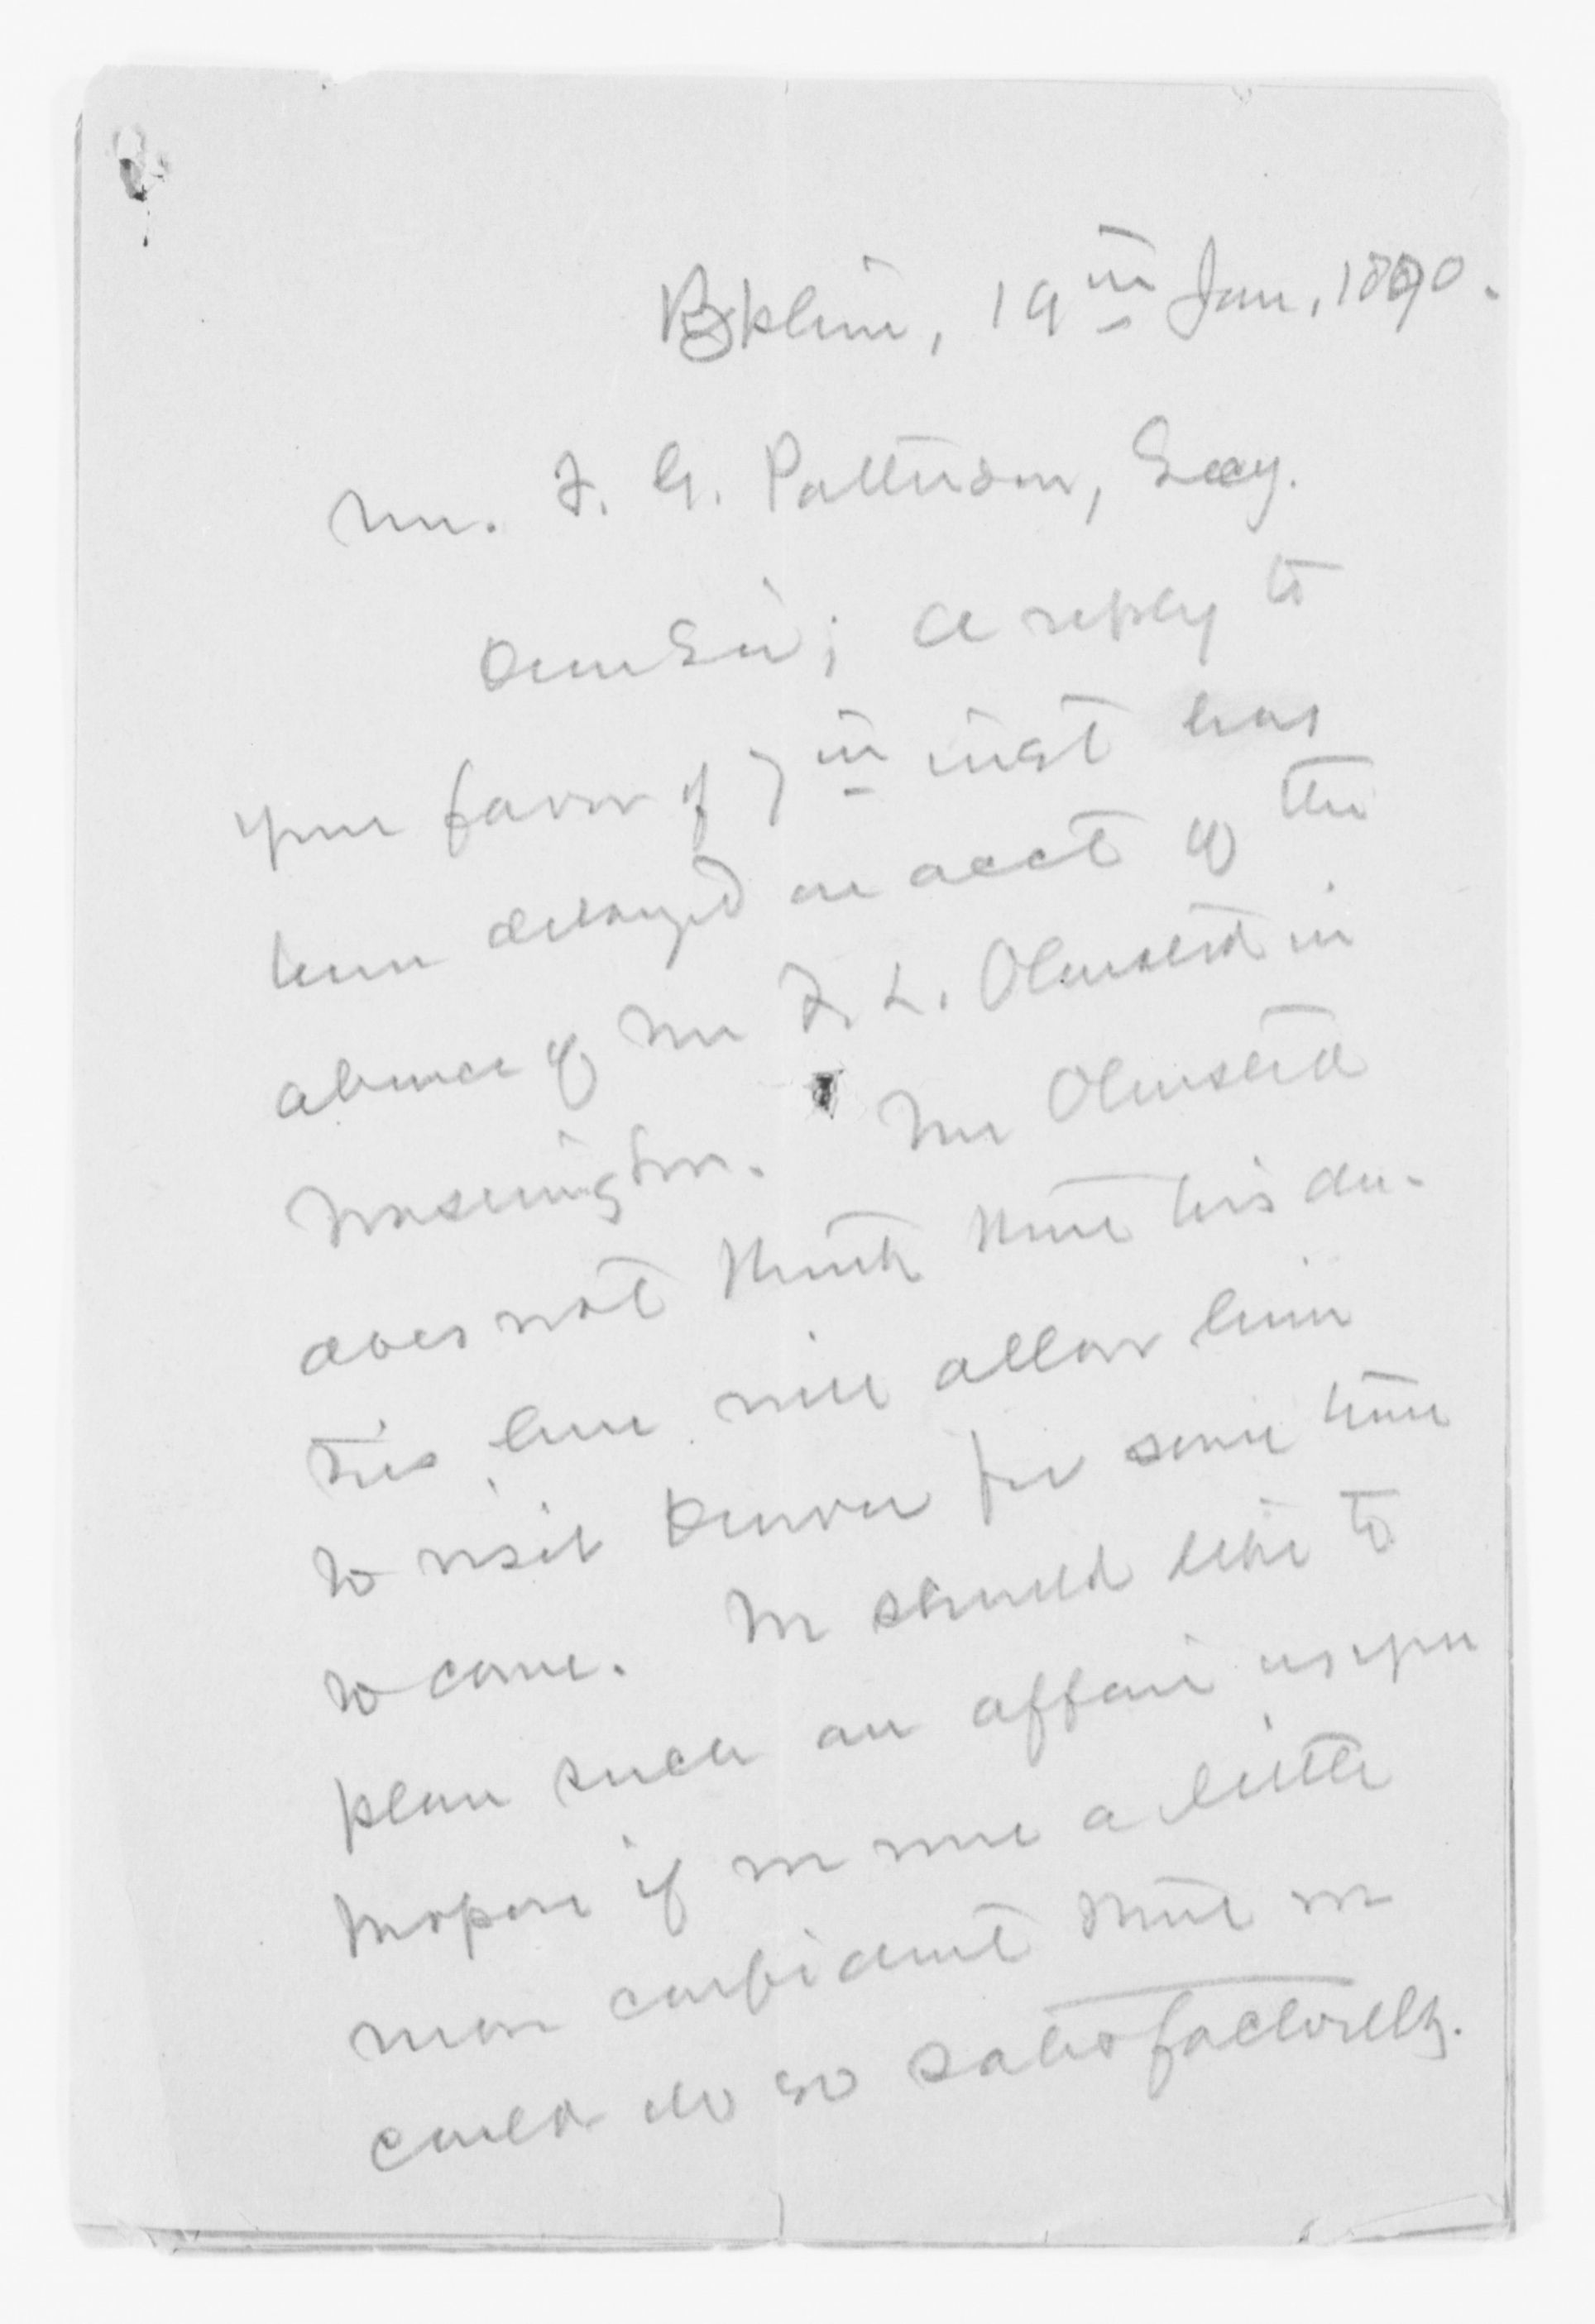 Bkline, 19th Jan, 1890.
Mr. F. G. Patterson, Secy.
Dear Sir; A reply to
your favor of 7th inst has
been delayed on acct of the
absence of Mr F. L. Olmsted in
Washington. Mr Olmsted
does not think that his du-
ties here will allow him
to visit Denver for some time
to come. We should like to
plan such an affair as you
propose if we were a little
more confident that we
could do so satisfactorily.